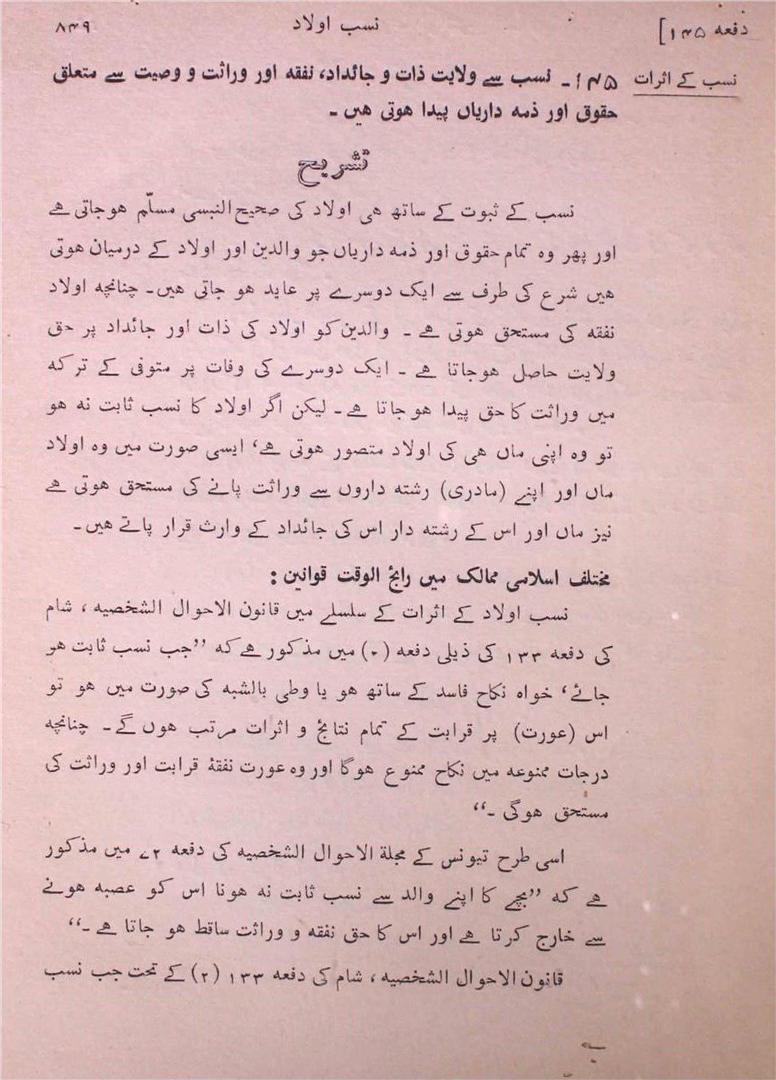 دفعہ ۱۴۵]
نسب اولاد
۸۴۹
نسب کے اثرات
۱۴۵۔ نسب سے ولایت ذات و جائداد، نفقہ اور وراثت و وصیت سے متعلق
حقوق اور ذمہ داریاں پیدا ہوتی ہیں ۔
تشریح
نسب کے ثبوت کے ساتھ ہی اولاد کی صحیح النبسی مسلّم ہوجاتی ہے
اور پھر وہ تمام حقوق اور ذمہ داریاں جو والدین اور اولاد کے درمیان ہوتی
ہیں شرع کی طرف سے ایک دوسرے پر عاید ہو جاتی ہیں۔ چنانچہ اولاد
نفقہ کی مستحق ہوتی ہے ۔ والدین کو اولاد کی ذات اور جائداد پر حق
ولایت حاصل ہوجاتا ہے ۔ ایک دوسرے کی وفات پر متوفی کے ترکہ
میں وراثت کا حق پیدا ہو جاتا ہے۔ لیکن اگر اولاد کا نسب ثابت نہ ہو
تو وہ اپنی ماں ہی کی اولاد متصور ہوتی ہے، ایسی صورت میں وہ اولاد
ماں اور اپنے (مادری) رشتہ داروں سے وراثت پانے کی مستحق ہوتی ہے
نیز ماں اور اس کے رشتہ دار اس کی جائداد کے وارث قرار پاتے ہیں۔
مختلف اسلامی ممالک میں رایج الوقت قوانین :
نسب اولاد کے اثرات کے سلسلے میں قانون الاحوال الشخصیہ ، شام
کی دفعہ ۱۳۳ کی ذیلی دفعہ (۲) میں مذکور ہےکہ ’’جب نسب ثابت ہو
جائے، خواہ نکاح فاسد کے ساتھ ہو یا وطی بالشبہ کی صورت میں ہو تو
اس (عورت) پر قرابت کے تمام نتایج و اثرات مرتب ہوں گے۔ چنانچہ
درجات ممنوعہ میں نکاح ممنوع ہوگا اور وہ عورت نفقۂ قرابت اور وراثت کی
مستحق ہوگی ۔‘‘
اسی طرح تیونس کے مجلة الاحوال الشخصیہ کی دفعہ ۷۲ میں مذکور
ہے کہ ’’بچے کا اپنے والد سے نسب ثابت نہ ہونا اس کو عصبہ ہونے
سے خارج کرتا ہے اور اس کا حق نفقہ و وراثت ساقط ہو جاتا ہے ۔‘‘
قانون الاحوال الشخصیہ ، شام کی دفعہ ۱۳۳ (۲) کے تحت جب نسب